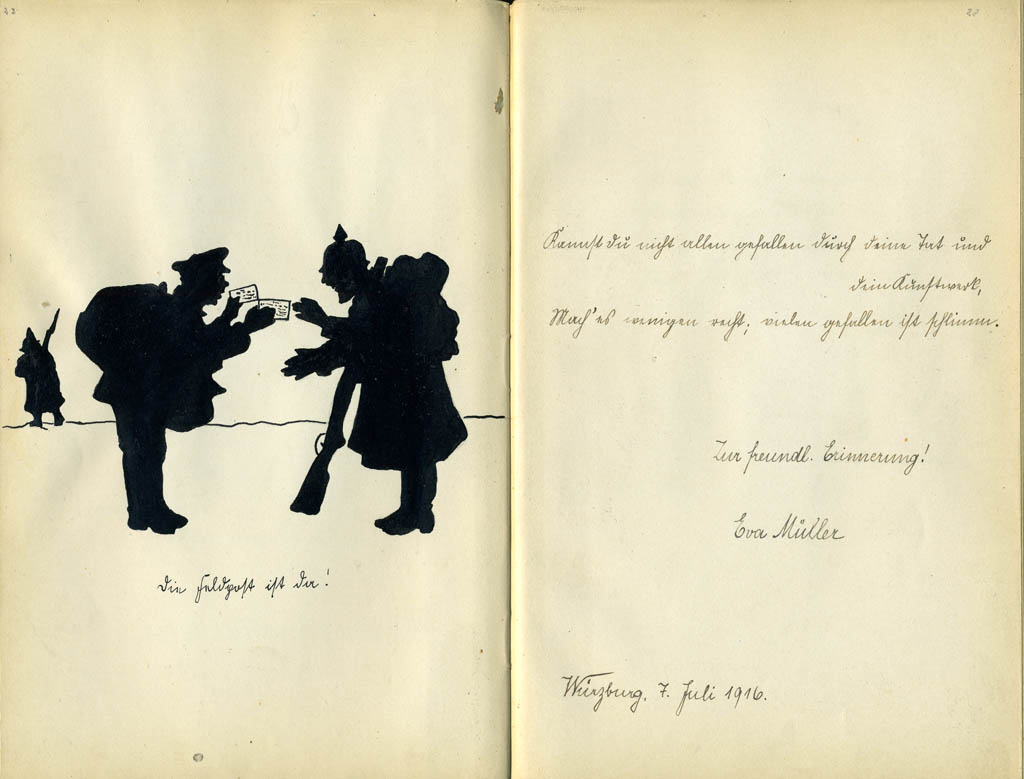 Die Feldpost ist da!
Kannst du nicht allen gefallen durch deine Tat und
dein Kunstwerk,
Mach' es wenigen recht; vielen gefallen ist schlimm.
Zur freundl. Erinnerung!
Eva Müller
Würzburg, 7. Juli 1916.